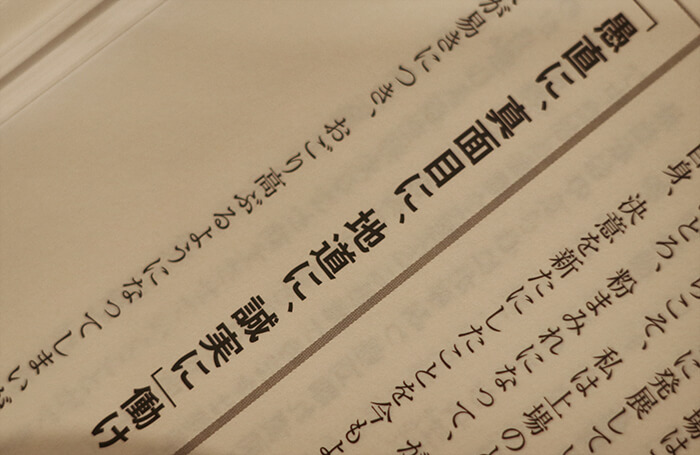 場は
に発展してい
こそ、私は上場の
ろ、粉まみれになって、
自身、決意を新たにしたことを今もよ
「愚直に、真面目に、地道に、誠実に」働け
が易きにつき、おごり高ぶるようになってしまいが